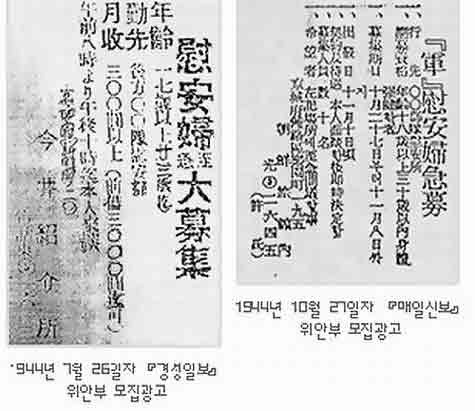 慰安婦至急大募集
年齢 一七歳以上廿三歳迄
勤先 後方〇〇隊慰安部
月収 三〇〇圓以上(前借三〇〇〇圓迄可)
午前八時より午後十時迄本人來談
今井紹介所
'944년 7월 26일자 『경성일보』
위안부 모집광고
『軍』慰安婦急募
一、行先 〇〇部隊慰安所
一、應募資格 年齢十八歳以上三十歳以内身體
一、募集期日 十月二十七日 十一月八日
一、出發日 十一月十日頃
一、契約及待遇 本人面談後即時決定
一、募集人員 數 名
一、希望者 左記場所
町一九五
朝鮮旅館内
光③二六四五
(許氏)
1944년 10월 27일자 『매일신보』
위안부 모집광고